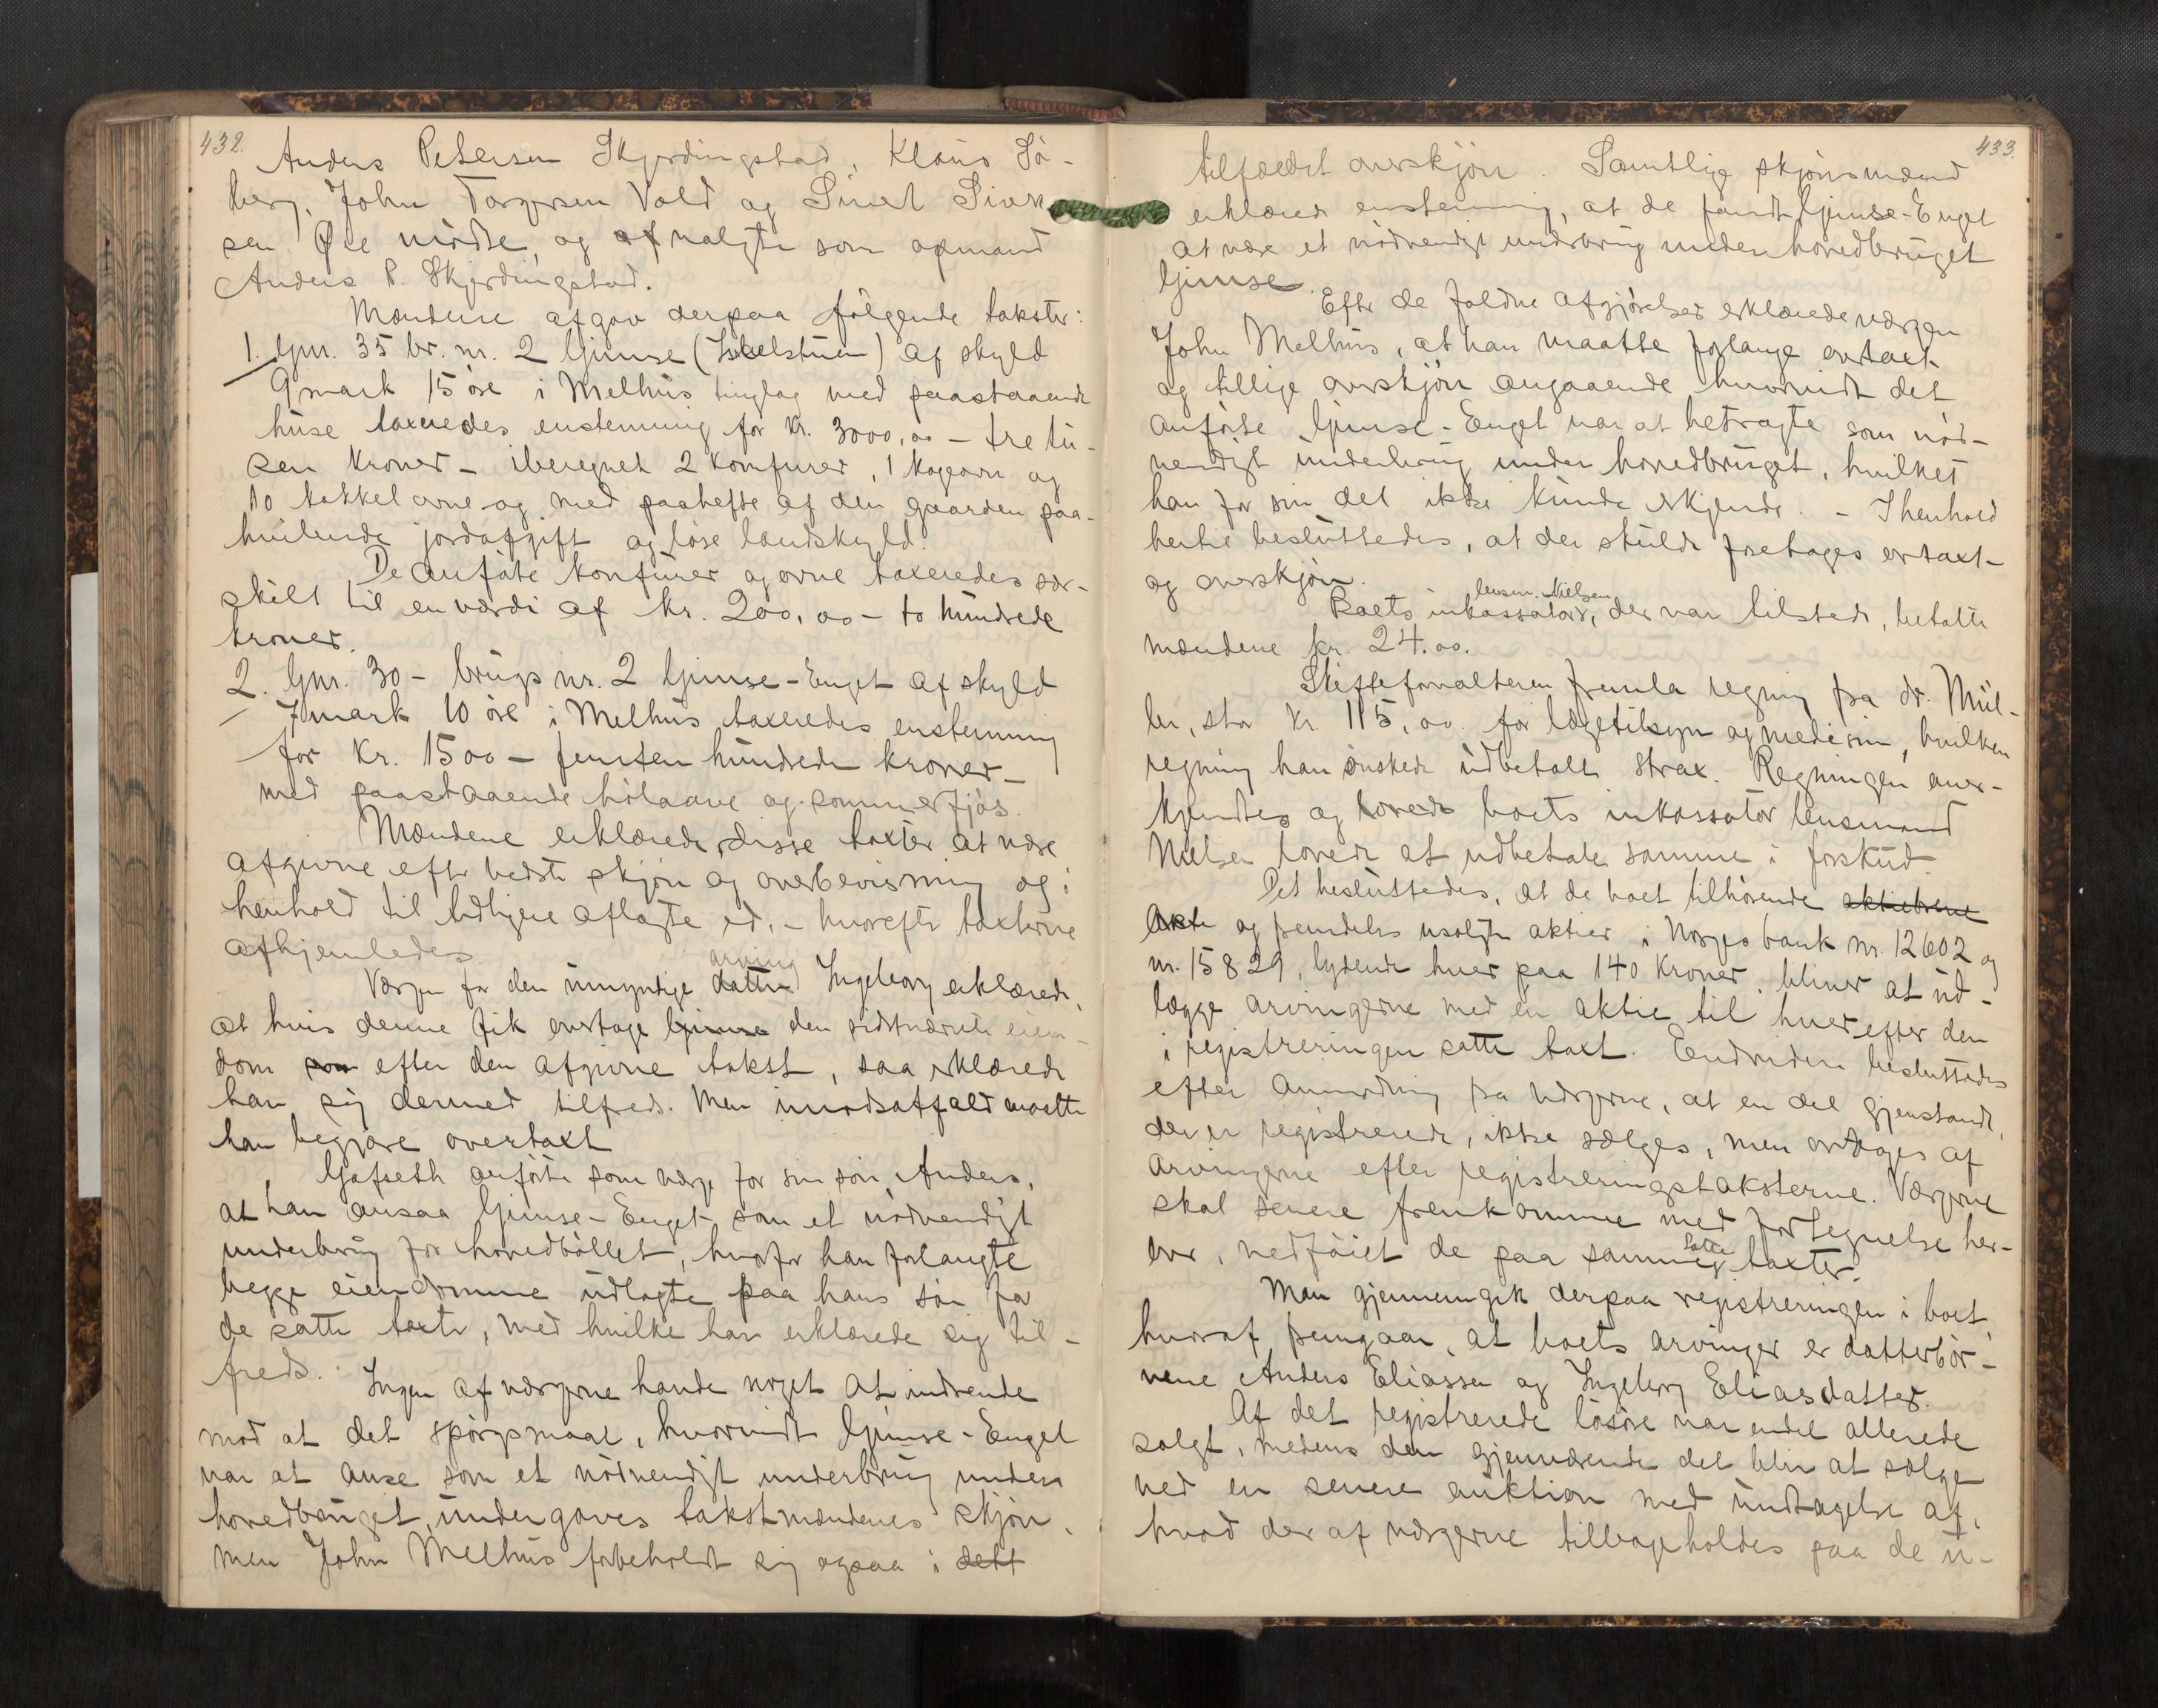 432.
Anders Petersen Skjerdingstad, Klaus Sö-
berg, John Torgersen Vold og Sivert Sivert-
sen Öie mödte, og valgte som opmand
Anders P. Skjerdingstad.
Mændene afgav derpaa fölgende takster:
1. Gnr. 35 br. nr. 2 Gjimse () af skyld
9 mark 15 öre i Melhus tinglag med paastaaende
huse taxeredes enstemmig for kr. 3000,00 – tre tu-
sen kroner – iberegnet 2 komfurer, 1 kogeovn og
10 kakkelovne og med paahefte af den gaarden paa-
hvilende jordafgift og löse landskyld.
De anförte komfurer og ovne taxeredes sær-
skilt til en værdi af kr. 200,00 – to hundrede
kroner.
2. Gnr. 30 – brugs nr. 2 Gjimse-Enget af skyld
7 mark 10 öre i Melhus taxeredes enstemmig
for kr. 1500 – femten hundrede kroner –
med paastaaende hölaave og sommerfjös.
Mændene erklærede disse taxter at være
afgivne efter bedste skjön og overbevisning og i
henhold til tidligere aflagte ed, – hvorefter taxterne
afhjemledes.
arving
Værgen for den umyndige datter Ingeborg erklærede,
at hvis denne fik overtage Gjimse den sidstnævnte eien-
dom som efter den afgivne takst, saa erklærede
han sig dermed tilfreds. Men imodsatfald maatte
han begjære overtaxt
Gafseth anförte som værge for sin sön Anders,
at han ansaa Gjimse-Enget som et nödvendigt
underbrug for hovedböllet, hvorfor han forlangte
begge eiendomme udlagte paa hans sön for
de satte taxter, med hvilke han erklærede sig til-
freds.
Ingen af værgerne havde noget at indvende
mod at det spörgsmaal, hvorvidt Gjimse-Enget
var at anse som et nödvendigt underbrug under
hovedbruget, undergaves takstmændenes skjön,
men John Melhus forbeholdt sig ogsaa i dett
433.
tilfældet overskjön. Samtlige skjönsmænd
erklærede enstemmig, at de fandt Gjimse-Enget
at være et nödvendigt underbrug under hovedbruget
Gjimse.
Efter de faldne afgjörelser erklærede værgen
John Melhus, at han maatte forlange overtaxt
og tillige overskjön angaaende hvorvidt det
anförte Gjimse-Enget var at betragte som nöd-
vendigt underbrug under hovedbruget, hvilket
han for sin del ikke kunde erkjende. – I henhold
hertil besluttedes, at der skulde foretages overtaxt
og overskjön.
lensm. Nielsen
Boets inkassator, der var tilstede, betalte
mændene kr. 24.00.
Skifteforvalteren fremla regning fra dr. Mül-
ler, stor kr. 115,00 for lægetilsyn og medisin, hvilken
regning han önskede udbetalt strax. Regningen aner-
kjendtes og lovede boets inkassator lensmand
Nielsen lovede at udbetale samme i forskud.
Det besluttedes, at de boet tilhörende aktiebreve
 og fremdeles usolgte aktier i Norges bank nr. 12602 og
nr. 15829, lydende hver paa 140 kroner, bliver at ud-
lægge arvingerne med en aktie til hver efter den
i registreringen satte taxt. Endvidere besluttedes
efter anmodning fra værgerne, at en del gjenstande,
der er registrerede, ikke sælges, men overtages af
arvingerne efter registreringstaksterne. Værgerne
skal senere fremkomme med fortegnelse her-
satte
over, vedföiet de paa samme taxter.
Man gjennemgik derpaa registreringen i boet
hvoraf fremgaar, at boets arvinger er datterbör-
nene Anders Eliassen og Ingeborg Eliasdatter.
Af det registrerede lösöre var endel allerede
solgt, medens den gjenværende del blir at sælge
ved en senere auktion med undtagelse af,
hvad der af værgerne tilbageholdes paa de u-